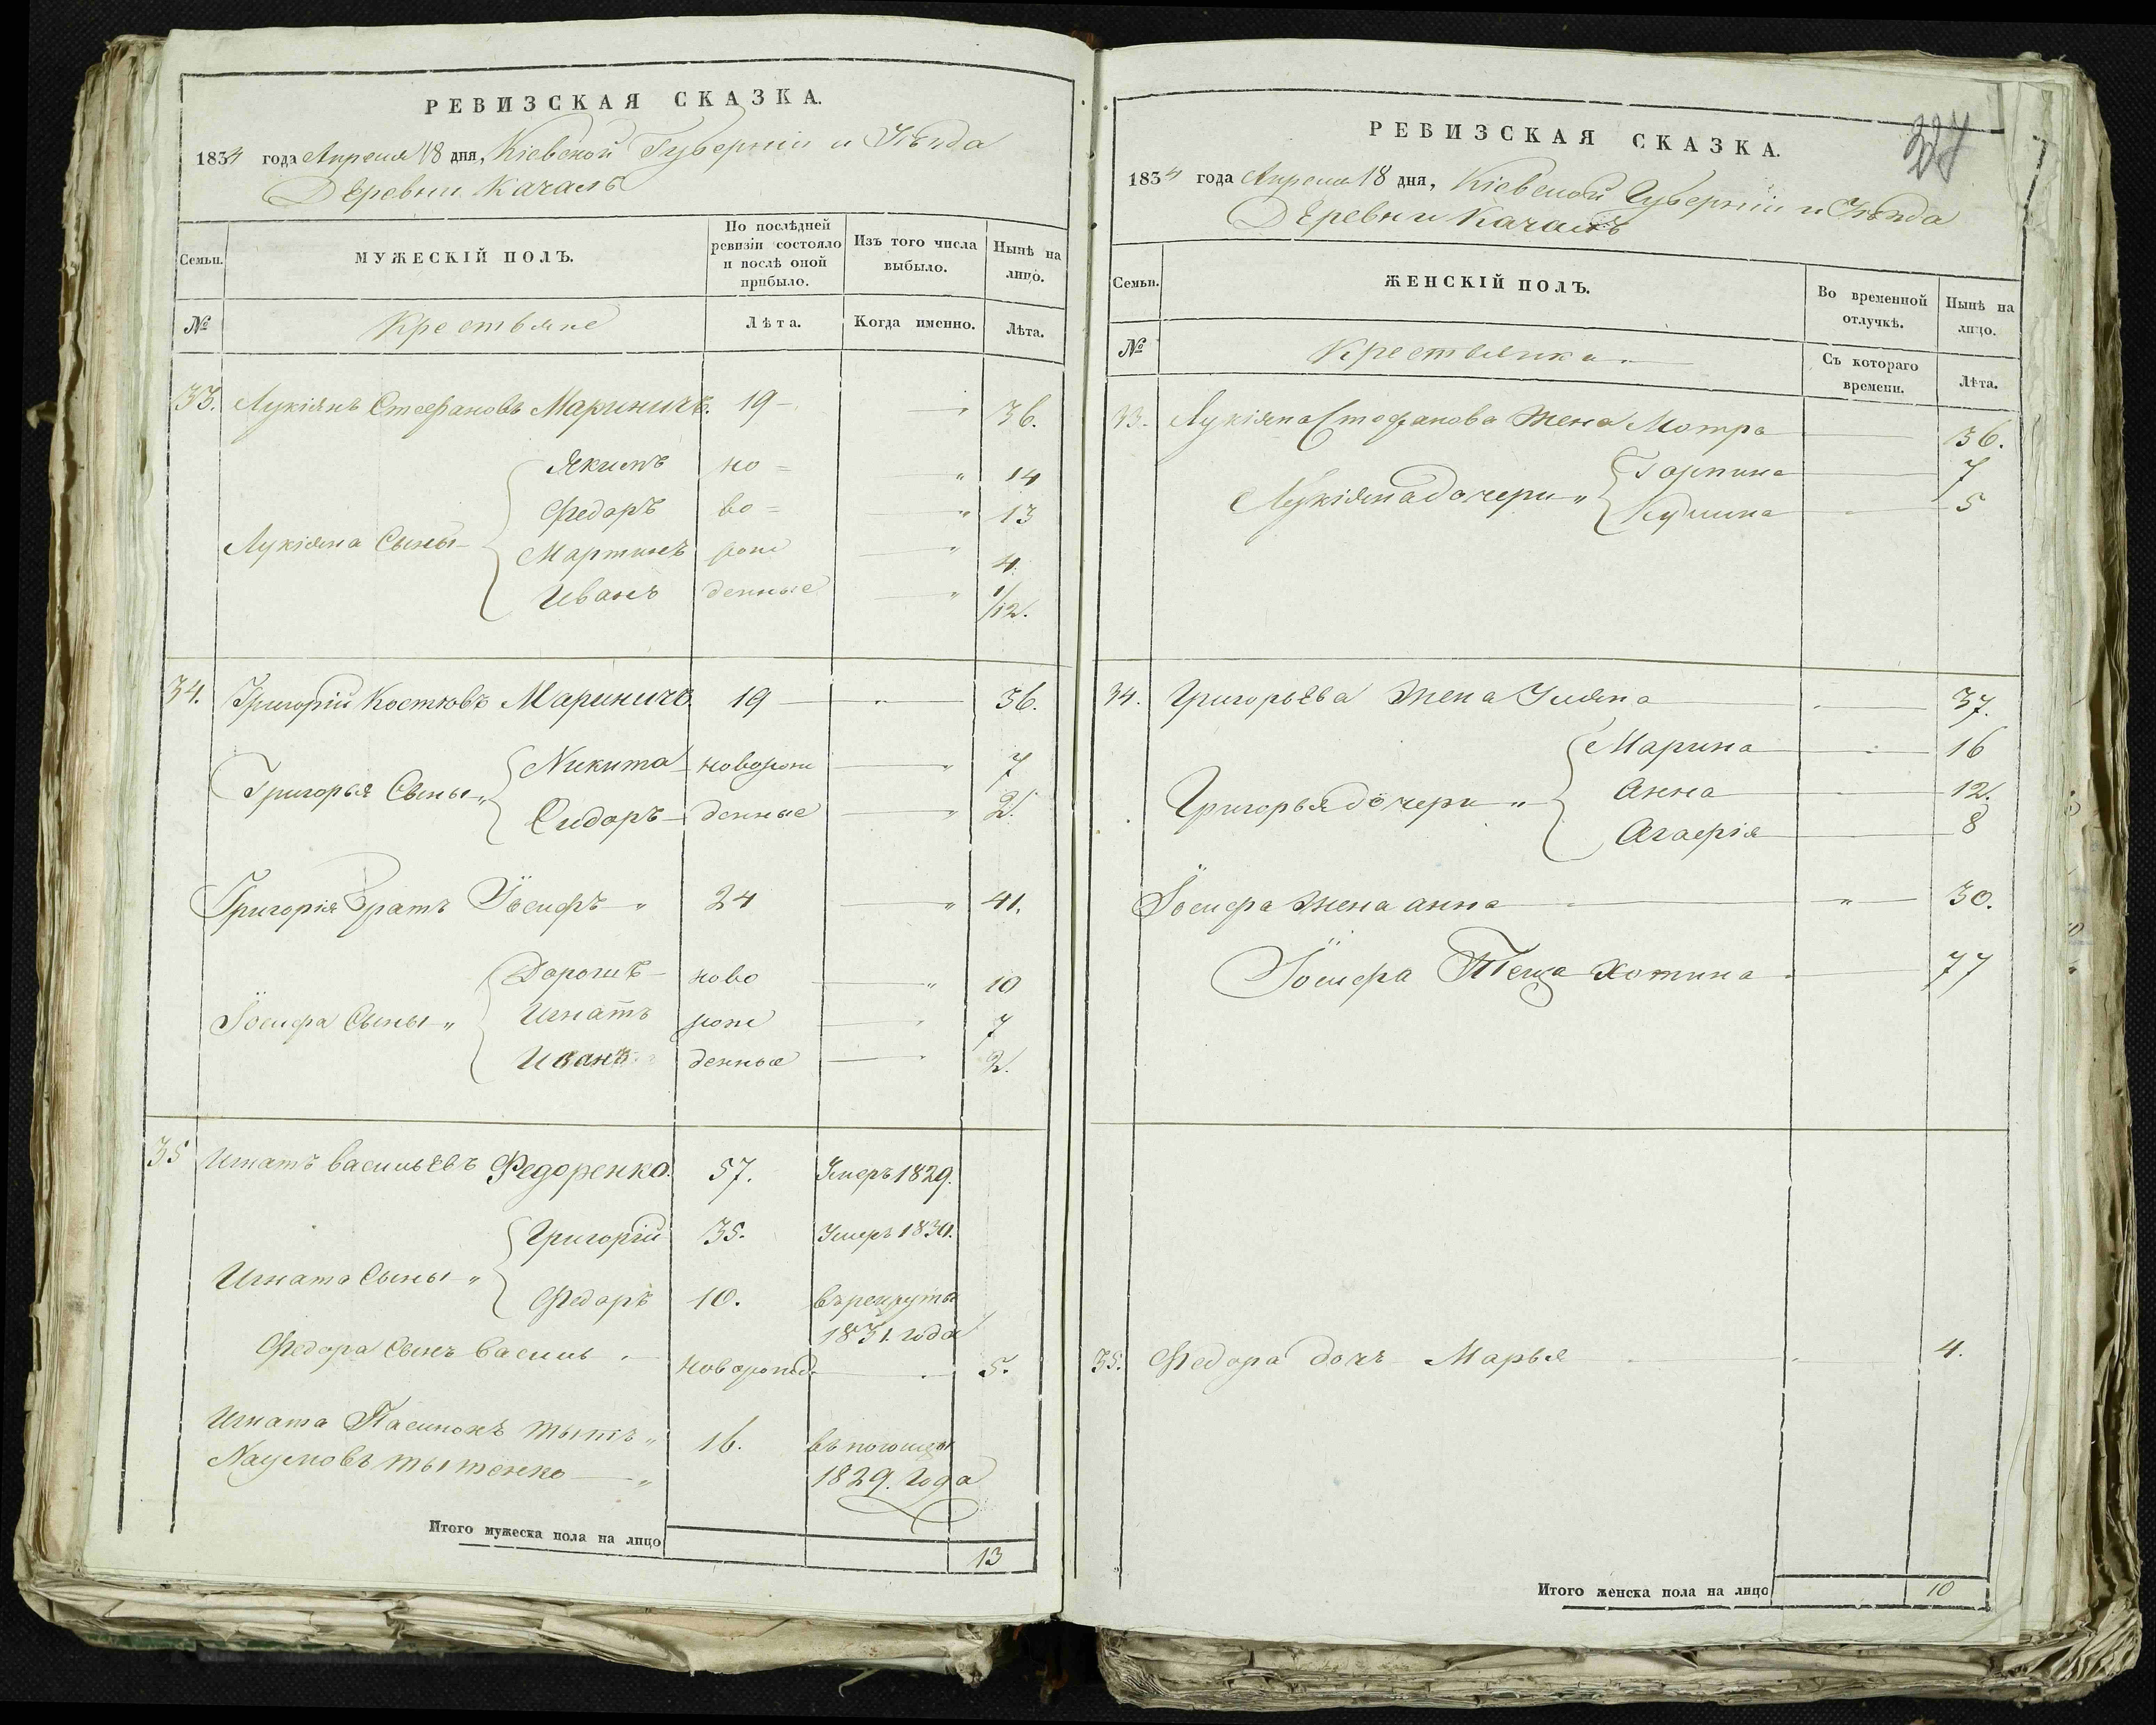 РЕВИЗСКАЯ СКАЗКА.
1834 года Апреля 18 дня, Кіевской Губерніи и Уѣзда
Деревни Качалъ
Семьи. МУЖЕСКІЙ ПОЛЪ. По послѣдней ревизіи состояло и послѣ оной прибыло. Изъ того числа выбыло. Нынѣ на лицо.
№ Крестьяне Лѣта. Когда именно. Лѣта.
33. Лукіянъ Стефановъ Мариничъ. 19 36.
Якимъ но= 14
Федоръ во= 13
Лукіяна Сыны
Мартинъ рож 4.
Иванъ денные 1/12.
34. Григорій Костювъ Мариничъ 19 36.
Никита новорож 7
Григорья Сыны
Сидоръ денные 2.
Григорія Братъ Іосифъ 24 41.
Дорошъ ново 10
Іосифа Сыны Игнатъ рож 7
Иванъ денные 2.
35 Игнатъ васильевъ Федоренко. 57. Умеръ 1829.
Григорій 35. Умеръ 1830.
Игната Сыны
Федоръ 10. въ рекруты
1831. года
Федора Сынъ Василь новорожд. 5.
Игната Пасинокъ Тытъ 16.
Наумовъ Тытенко 1829. Года
Итого мужеска пола на лицо 13
РЕВИЗСКАЯ СКАЗКА.
1834 года Апреля 18 дня, Кіевской Губерніи и Уѣзда
Деревни Качалъ
Семьи. ЖЕНСКІЙ ПОЛЪ. Во временной отлучкѣ. Нынѣ на лицо.
№ Съ котораго времени. Лѣта.
33. Лукіяна Стефанова Жена Мотра 36.
Горпина 7
Лукіяна дочери
Кулина 5
34. Григорьева Жена Уляна 37.
Марина 16
Анна 12.
Григорья дочери
Агафія 8
Іосифа Жена анна 30.
Іосифа Теща Хотина 77
35. Федора дочъ Марья 4.
Итого женска пола на лицо 10